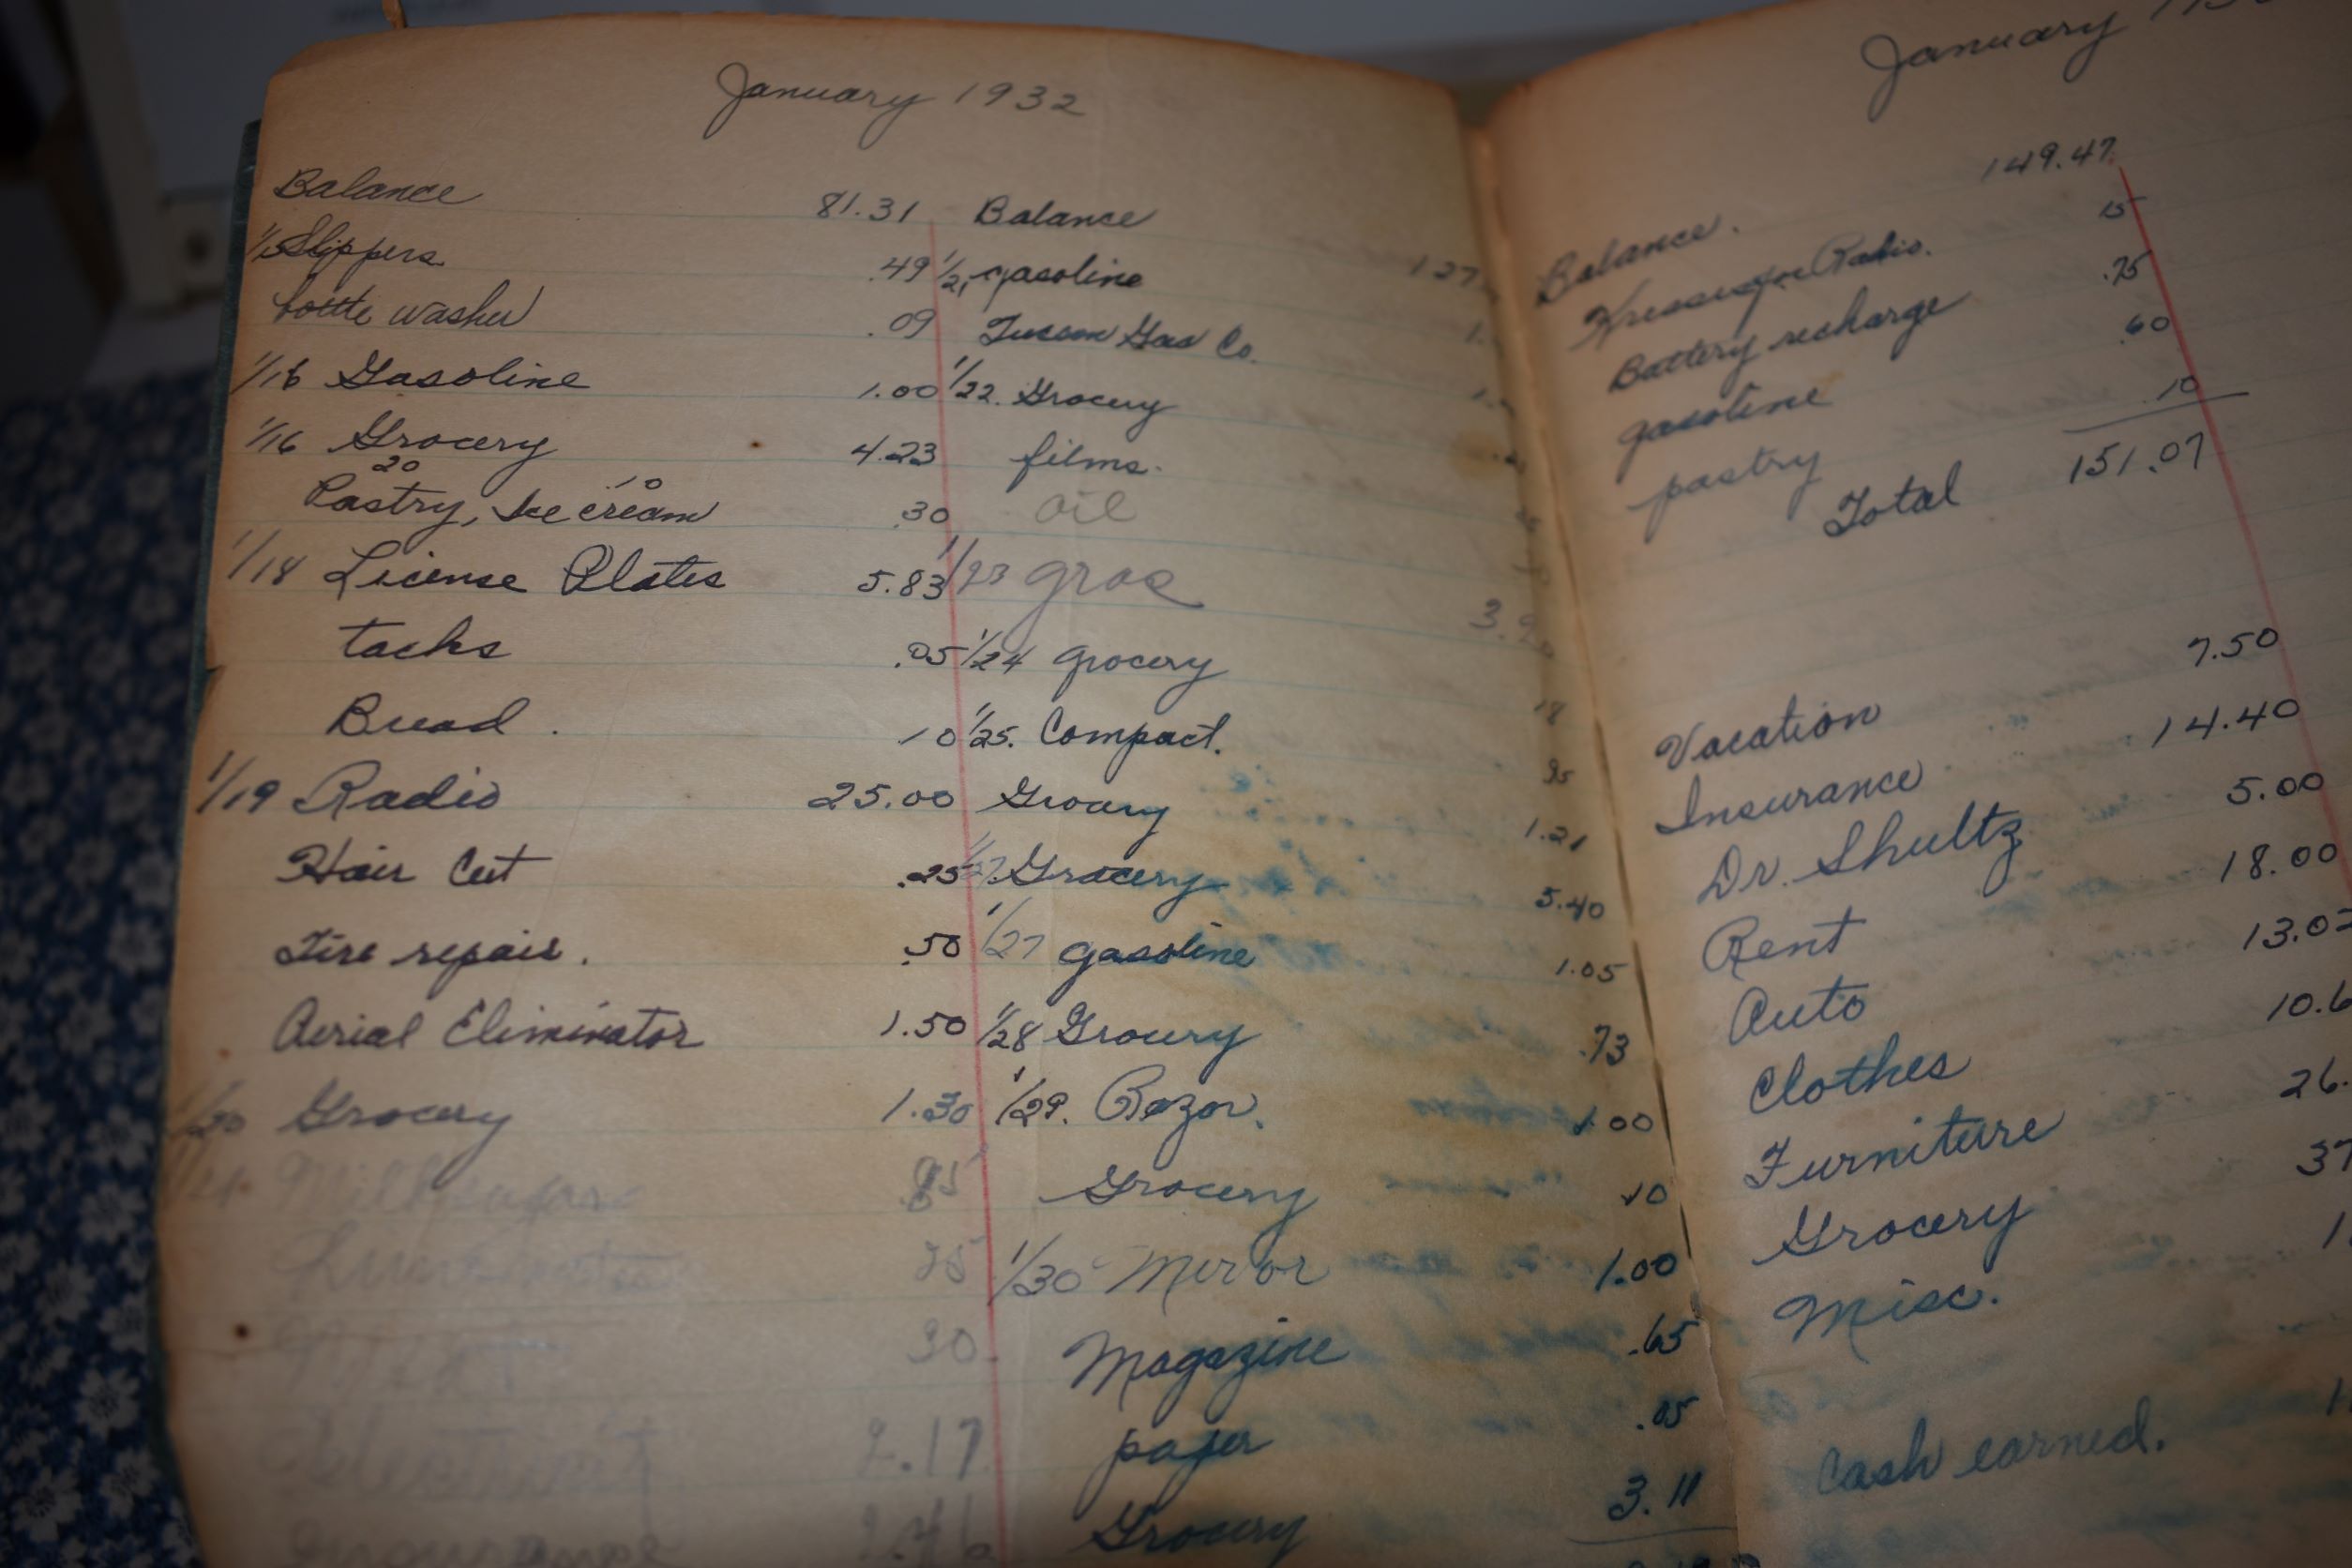 January 1932
Balance 81.31
1/15 Slippers .49
bottle washer .09
1/16 Gasoline 1.00
1/16 Grocery 4.23
20 10
Pastry, Ice cream .30
1/18 License Plates 5.83
tacks .05
Bread . 10
1/19 Radio 25.00
Hair Cut .25
Tire repair. .50
Aerial Eliminator 1.50
1/20 Grocery 1.30
25
30
2.17
Balance
1/21 gasoline
Tucson Gas Co.
1/22. Grocery
films.
oil
1/23 groc
1/24 grocery 18
1/25. Compact. 95
Grocery 1.21
Grocery 5.40
1/27 gasoline 1.05
1/28 Grocery .73
1/29. Razor. 1.00
Grocery 10
1/30 Merror 1.00
Magazine .65
paper .05
Grocery 3.11
January
149.47
Balance.
Kresses for Radio. 15
Battery recharge .75
gasoline .60
pastry .10
Total 151.07
Vacation 7.50
Insurance 14.40
Dr. Shultz 5.00
Rent 18.00
Auto 13.02
Clothes 10.6
Furniture 26.
Grocery 37
Misc.
Cash earned.